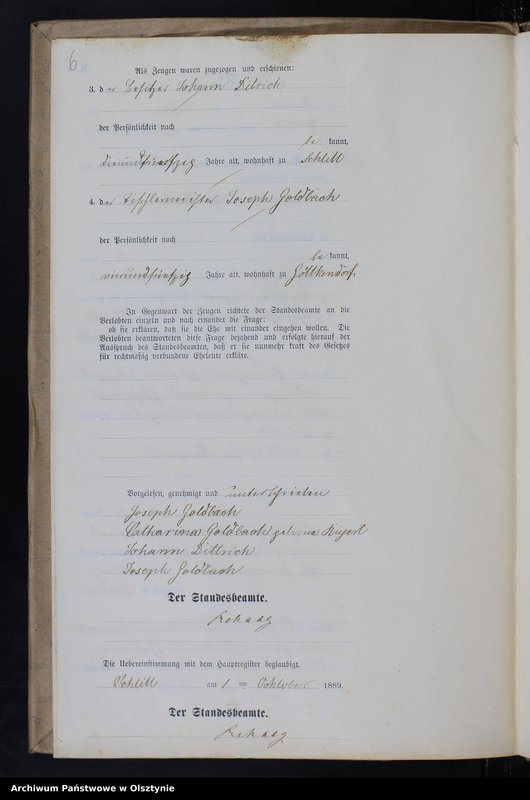 6
Als Zeugen waren zugezogen und erschienen:
3. der Besitzer Johann Ditrich
der Persönlichkeit nach
be kannt,
dreiundfünfzig Jahre alt, wohnhaft zu Schlitt
4. der Tischlermeister Joseph Goldbach
der Persönlichkeit nach
be kannt,
vierundfünfzig Jahre alt, wohnhaft zu Göttkendorf.
In Gegenwart der Zeugen richtete der Standesbeamte an die
Verlobten einzeln und nach einander die Frage:
ob sie erklären, daß sie die Ehe mit einander eingehen wollen. Die
Verlobten beantworteten diese Frage bejahend und erfolgte hierauf der
Ausspruch des Standesbeamten, daß er sie nunmehr kraft des Gesetzes
für rechtmäßig verbundene Eheleute erkläre.
Vorgelesen, genehmigt und unterschrieben
Joseph Goldbach
Catharina Goldbach geborene
Johann Dittrich
Joseph Goldbach
Der Standesbeamte.
Rehaag
Die Uebereinstimmung mit dem Hauptregister beglaubigt.
Schlitt am 1 ten Oktober 1889.
Der Standesbeamte.
Rehaag
Archiwum Państwowe w Olsztynie